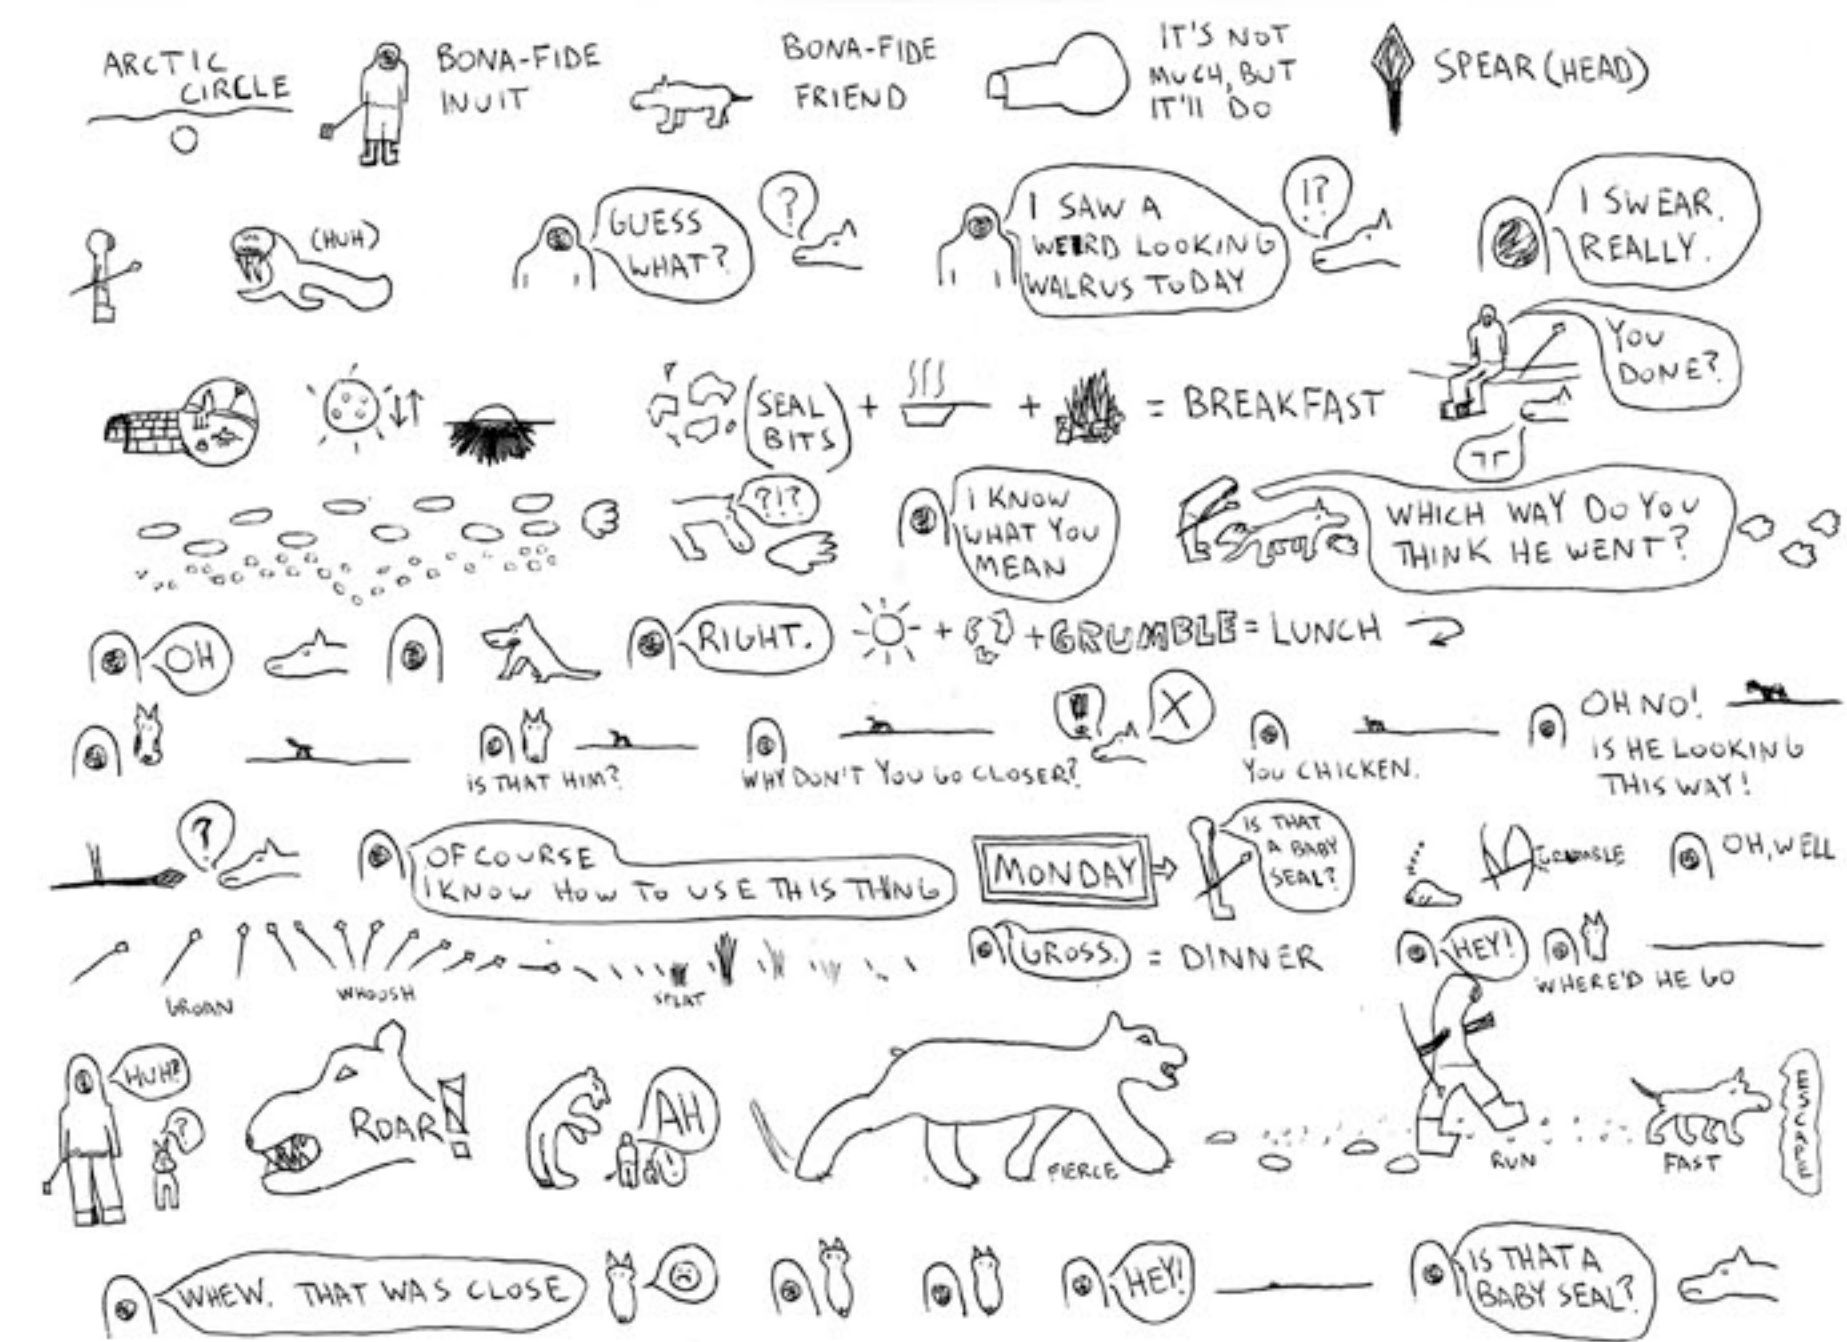 ARCTIC
CIRCLE
BONA-FIDE
INUIT
BONA-FIDE
FRIEND
IT'S NOT
MUCH, BUT
IT'll DO
SPEAR (HEAD)
(HUH)
GUESS
WHAT?
?
I SAW A
WEIRD LOOKING
WALRUS TODAY
!?
I SWEAR.
REALLY.
(SEAL
BITS)
+
+
= BREAKFAST
YOU
DONE?
?!?
I KNOW
WHAT YOU
MEAN
WHICH WAY DO YOU
THINK HE WENT?
OH
RIGHT.
+ + GRUMBLE = LUNCH
IS THAT HIM?
WHY DON'T YOU GO CLOSER?
!
X
YOU CHICKEN.
OH NO!
IS HE LOOKING
THIS WAY!
?
OF COURSE
I KNOW HOW TO USE THIS THING
MONDAY
IS THAT
A BABY
SEAL?
GRUMBLE
OH, WELL
GROAN
WHOOSH
SPLAT
GROSS.
= DINNER
HEY!
WHERE'D HE GO
HUH?
?
ROAR!
AH
!
FIERCE
RUN
FAST
ESCAPE
WHEW. THAT WAS CLOSE
HEY!
IS THAT A
BABY SEAL?